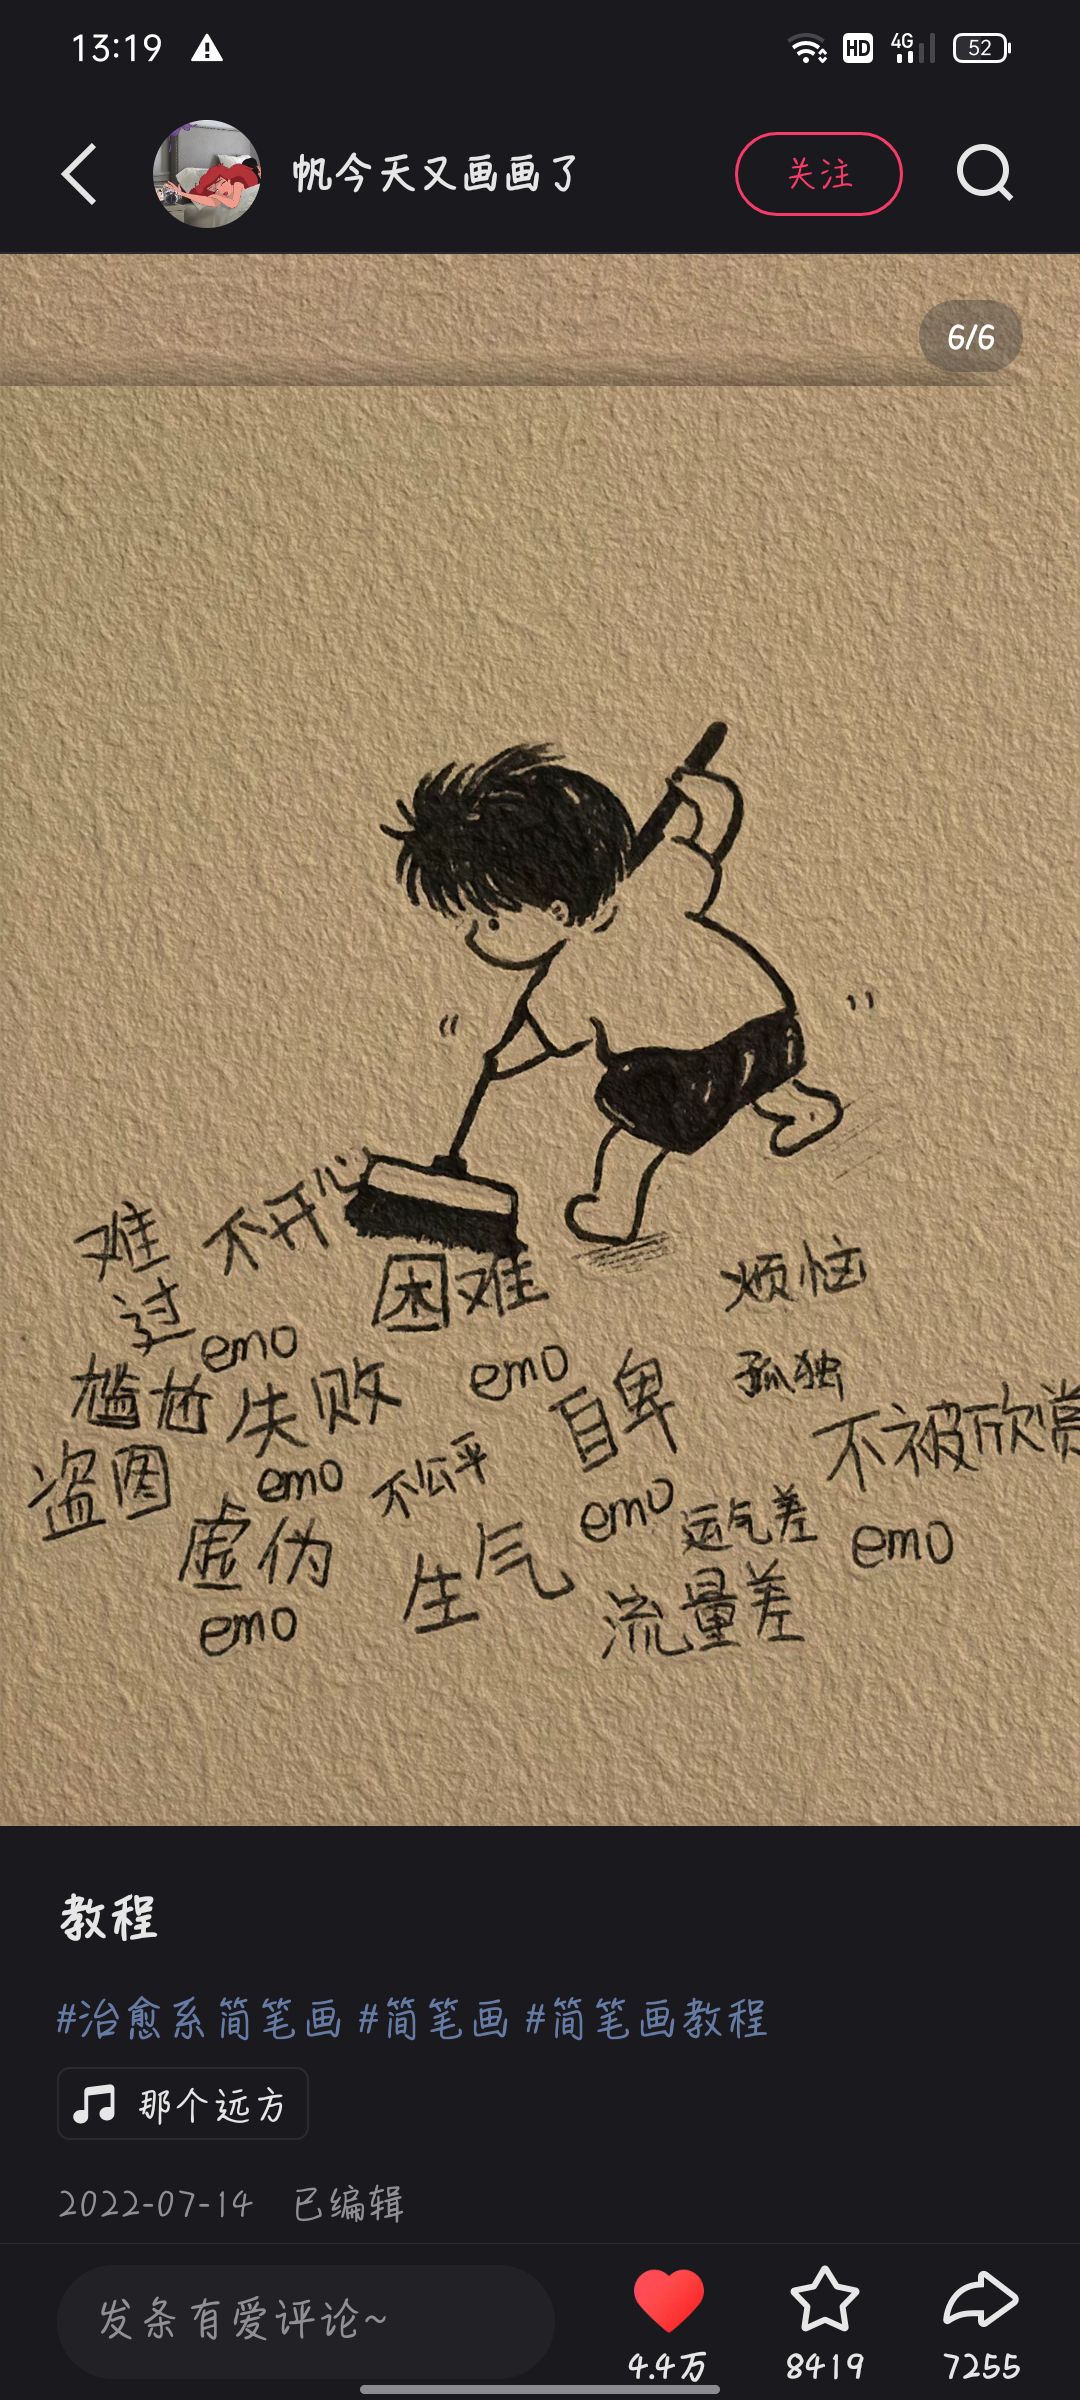 13:19
HD 4G 52
帆今天又画画了
关注
6/6
难过
不开心
困难
烦恼
emo
emo
孤独
尴尬
失败
自卑
不被欣赏
盗图
emo
不公平
emo
运气差
emo
虚伪
生气
流量差
emo
教程
#治愈系简笔画 #简笔画 #简笔画教程
那个远方
2022-07-14 已编辑
发条有爱评论~
4.4万
8419
7255